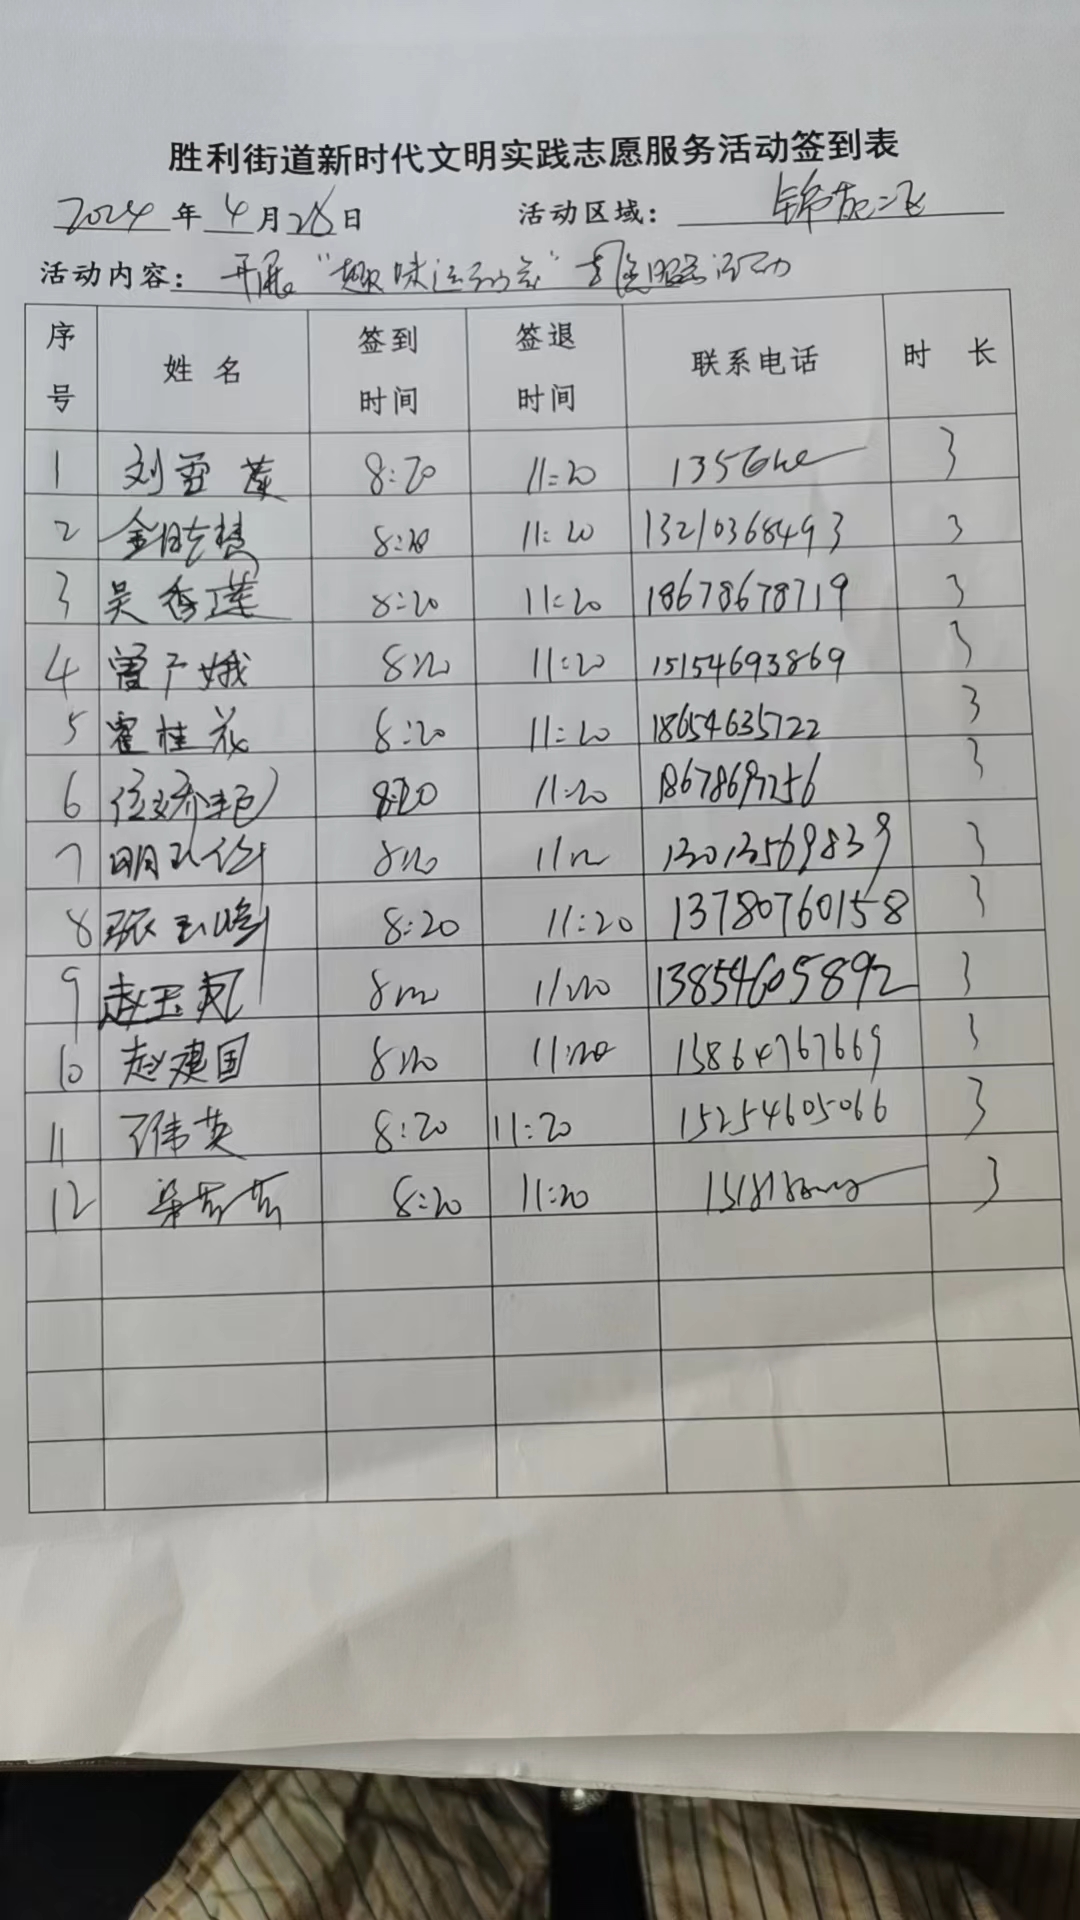 胜利街道新时代文明实践志愿服务活动签到表
2024年4月28日 活动区域：锦苑二
活动内容：开展“趣味运动会”志愿服务活动
序号 姓名 签到时间 签退时间 联系电话 时长
1 刘亚莲 8:20 11:20 3
2 金晓慧 8:20 11:20 13210368493 3
3 吴秀莲 8:20 11:20 18678678719 3
4 曹广娥 8:20 11:20 15154693869 3
5 霍桂花 8:20 11:20 18654635722 3
6 8:20 11:20 3
7 8:20 11:20 3
8 张玉 8:20 11:20 13780760158 3
9 赵玉 8:20 11:20 13854605892 3
10 赵建国 8:20 11:20 15864767669 3
11 伟英 8:20 11:20 15254605066 3
12 8:20 11:20 3